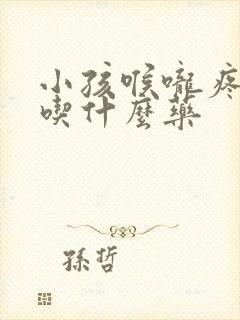 小孩喉嚨疼
喫什麼藥
孫哲